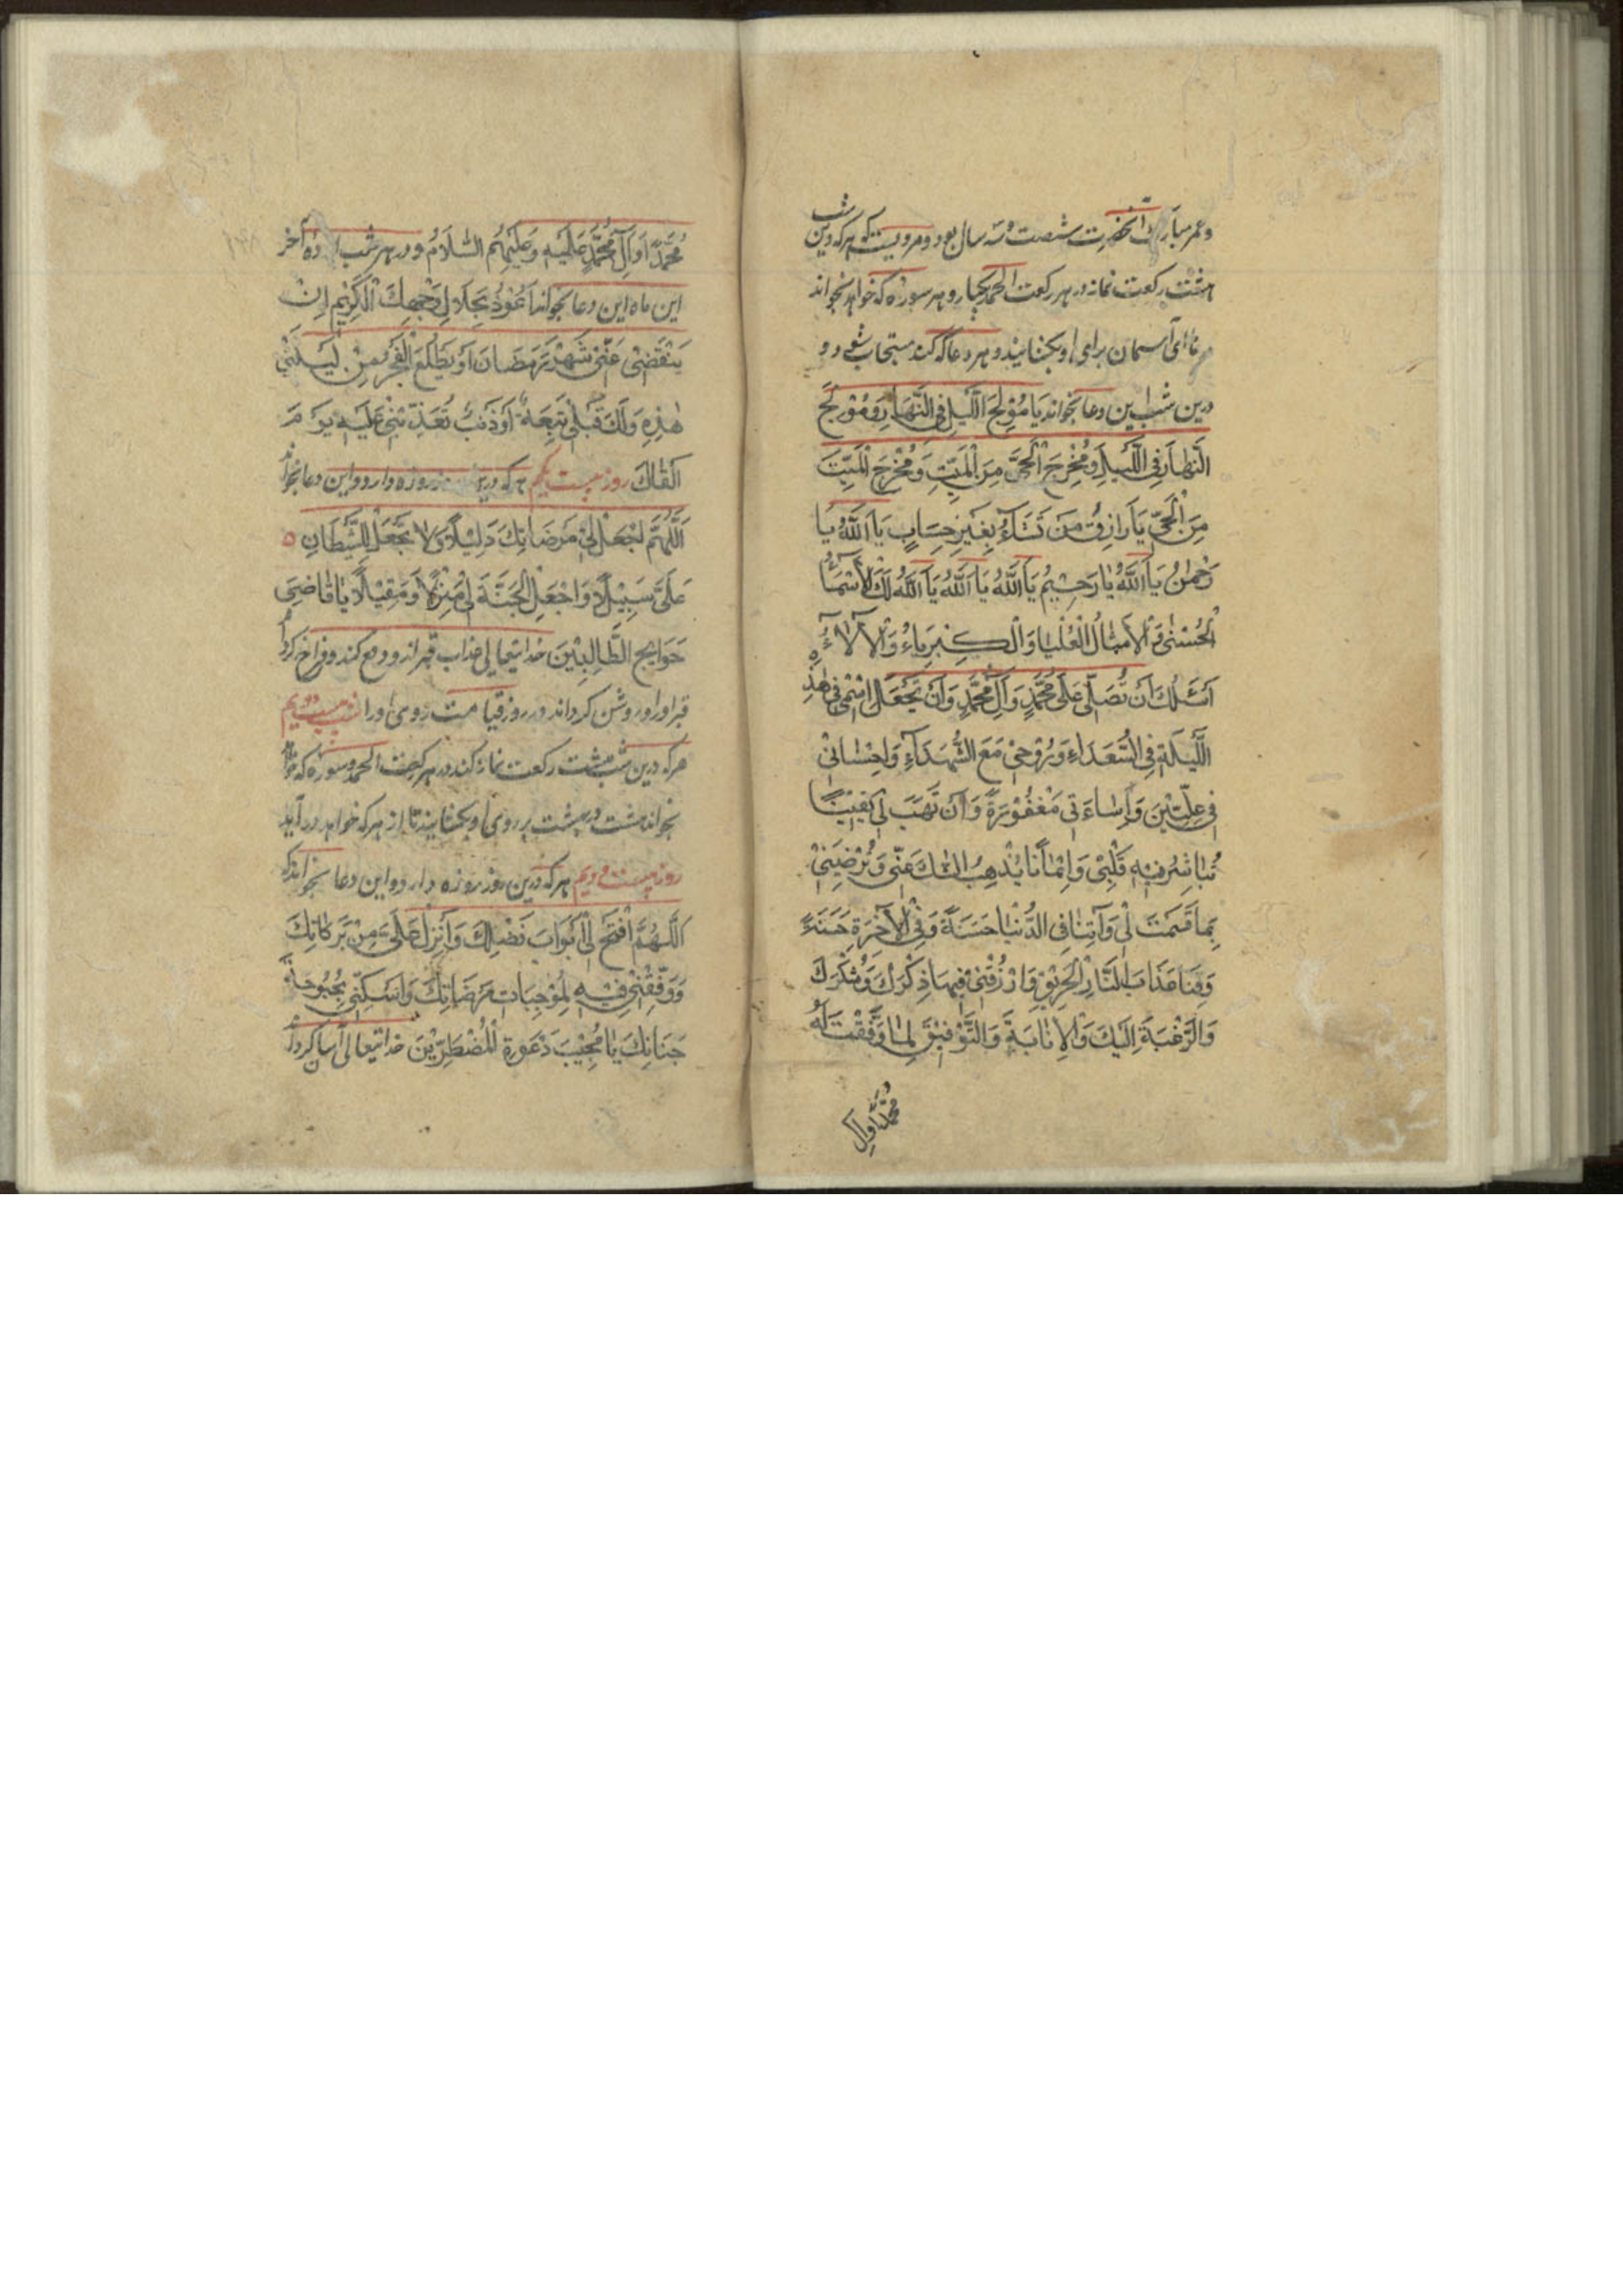 وعمر مبارک آنحضرت شصت و سه سال بود و مرویست که هر که درین شب
هشت رکعت نماز در هر رکعت الحمد یکبار و هر سوره که خواهد بخواند
درهای آسمان برای او بکشایند و هر دعا که کند مستجاب شود و
درین شب این دعا بخواند يَا مُوْلِجَ اللَّيْلِ فِي النَّهَارِ وَمُوْلِجَ
النَّهَارِ فِي اللَّيْلِ وَمُخْرِجَ الْحَيَّ مِنَ الْمَيِّتِ وَمُخْرِجَ الْمَيِّتَ
مِنَ الْحَيِّ يَا رَازِقُ مَنْ تَشَاءُ بِغَيْرِ حِسَابٍ يَا اَللّٰهُ يَا
رَحْمٰنُ يَا اَللّٰهُ يَا رَحِيْمُ يَا اَللّٰهُ يَا اَللّٰهُ يَا اَللّٰهُ لَكَ الْأَسْمَاءُ
الْحُسْنٰى وَالْأَمْثَالُ الْعُلْيَا وَالْكِبْرِيَاءُ وَالْآلَاءُ
اَسْئَلُكَ اَنْ تُصَلِّيَ عَلٰى مُحَمَّدٍ وَآلِ مُحَمَّدٍ وَاَنْ تَجْعَلَ اسْمِيْ فِيْ هٰذِهِ
اللَّيْلَةِ فِي السُّعَدَاءِ وَرُوْحِيْ مَعَ الشُّهَدَاءِ وَاِحْسَانِيْ
فِيْ عِلِّيِّيْنَ وَاِسَاءَتِيْ مَغْفُوْرَةً وَاَنْ تَهَبَ لِيْ يَقِيْنًا
تُبَاشِرُ بِهِ قَلْبِيْ وَاِيْمَانًا يُذْهِبُ الشَّكَّ عَنِّيْ وَتُرْضِيَنِيْ
بِمَا قَسَمْتَ لِيْ وَآتِنَا فِي الدُّنْيَا حَسَنَةً وَفِي الْآخِرَةِ حَسَنَةً
وَقِنَا عَذَابَ النَّارِ الْحَرِيْقِ وَارْزُقْنِيْ فِيْهَا ذِكْرَكَ وَشُكْرَكَ
وَالرَّغْبَةَ اِلَيْكَ وَالْاِنَابَةَ وَالتَّوْفِيْقَ لِمَا وَفَّقْتَ لَهُ
مُحَمَّدًا وَآلَ
مُحَمَّدًا وَآلَ مُحَمَّدٍ عَلَيْهِ وَعَلَيْهِمُ السَّلَامُ و در هر شب از ده آخر
این ماه این دعا بخواند اَعُوْذُ بِجَلَالِ وَجْهِكَ الْكَرِيْمِ اِنْ
يَنْقَضِيْ عَنِّيْ شَهْرُ رَمَضَانَ اَوْ يَطْلُعَ الْفَجْرُ مِنْ لَيْلَتِيْ
هٰذِهِ وَلَكَ قِبَلِيْ تَبِعَةٌ اَوْ ذَنْبٌ تُعَذِّبُنِيْ عَلَيْهِ يَوْمَ
اَلْقَاكَ روز بیست یکم هر که درین روز روزه دارد و این دعا بخواند
اَللّٰهُمَّ اجْعَلْ لِيْ مَرْضَاتِكَ دَلِيْلًا وَلَا تَجْعَلْ لِلشَّيْطَانِ
عَلَيَّ سَبِيْلًا وَاجْعَلِ الْجَنَّةَ لِيْ مَنْزِلًا وَمَقِيْلًا يَا قَاضِيَ
حَوَائِجِ الطَّالِبِيْنَ خدایتعالی عذاب قبر از و دفع کند و فراخ گرداند
قبر او را و روشن گرداند در روز قیامت روی او را شب بیست دویم
هر که درین شب هشت رکعت نماز کند در هر رکعت الحمد و سوره که خواهد
بخواند هشت در بهشت بر روی او بکشایند تا از هر که خواهد در آید
روز بیست دویم هر که درین روز روزه دارد و این دعا بخواند که
اَللّٰهُمَّ افْتَحْ لِيْ اَبْوَابَ فَضْلِكَ وَاَنْزِلْ عَلَيَّ مِنْ بَرَكَاتِكَ
وَوَفِّقْنِيْ فِيْهِ لِمُوْجِبَاتِ مَرْضَاتِكَ وَاَسْكِنِّيْ بُحْبُوْحَةَ
جَنَانِكَ يَا مُجِيْبَ دَعْوَةِ الْمُضْطَرِّيْنَ خدایتعالی آسان گرداند